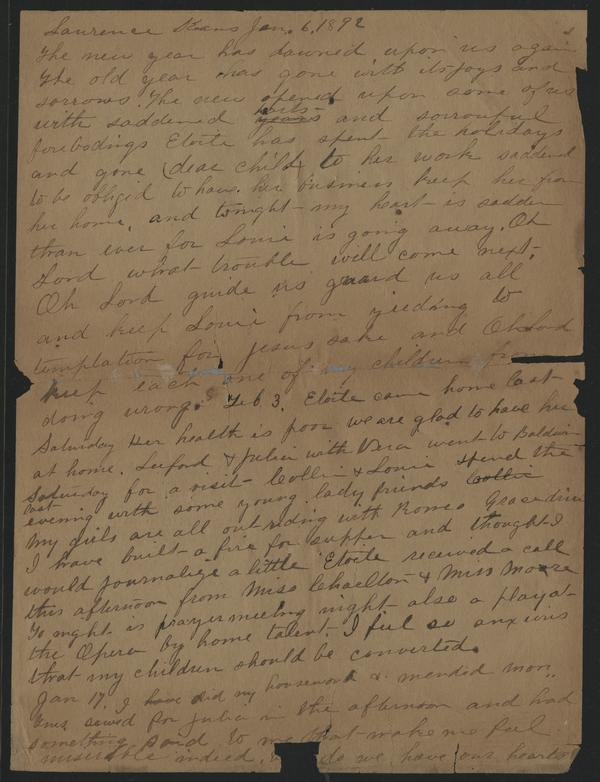 Lawrence Kans Jan. 6, 1892
The new year has dawned upon us again
The old year has gone with its joys and
sorrows. The new opened upon some of us
with saddened hearts and sorrowful
forebodings Eloite has spent the holidays
and gone (dear child) to her work saddend
to be obliged to have her business keep her from
her home, and tonight my heart is sadder
than ever for Louie is going away. Oh
Lord what trouble will come next.
Oh Lord guide us guard us all
and keep Louie from yieding to
temptation for Jesus sake and Oh Lord
keep each one of my children from
doing wrong. Feb. 3. Eloite came home last
Saturday Her health is poor we are glad to have her
at home. Luford & Julia with Vera went to Baldwin
Saturday for a visit Collie & Louie spend the
last evening with some young lady friends Collie
My girls are all out riding with Romeo Grace
I have built a fire for supper and thought I
would journalize a little Eloite received a call
this afternoon from Miss & Miss Moore
To night is prayermeeting night also a play at
the Opera by home talent. I feel so anxious
that my children should be converted.
Jan 17. I have did my housework & mended
sewed for Julia in the afternoon and had
something said to me that make me feel
miserable indeed, do we have our hearts